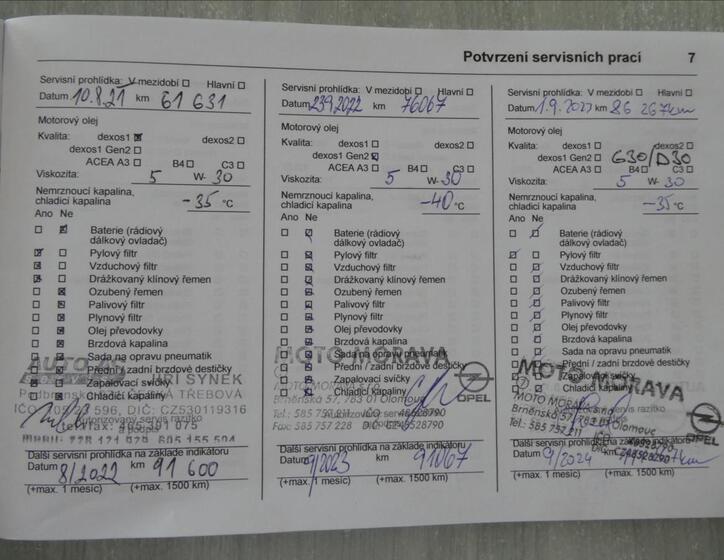 Potvrzení servisních prací 7
Servisní prohlídka: V mezidobí Hlavní
Datum 10.8.21 km 61 631
Motorový olej
Kvalita: dexos1 dexos2
dexos1 Gen2
ACEA A3 B4 C3
Viskozita: 5 W- 30
Nemrznoucí kapalina,
chladicí kapalina -35 °C
Ano Ne
Baterie (rádiový
dálkový ovladač)
Pylový filtr
Vzduchový filtr
Drážkovaný klínový řemen
Ozubený řemen
Palivový filtr
Plynový filtr
Olej převodovky
Brzdová kapalina
Sada na opravu pneumatik
Přední / zadní brzdové destičky
Zapalovací svíčky
Chladicí kapaliny
JIŘÍ SYNEK
TŘEBOVÁ
DIČ: CZ530119316
Další servisní prohlídka na základě indikátoru
Datum 8/2022 km 91 600
(+max. 1 měsíc) (+max. 1500 km)
Servisní prohlídka: V mezidobí Hlavní
Datum 23.9.2022 km 76067
Motorový olej
Kvalita: dexos1 dexos2
dexos1 Gen2
ACEA A3 B4 C3
Viskozita: 5 W- 30
Nemrznoucí kapalina,
chladicí kapalina -40 °C
Ano Ne
Baterie (rádiový
dálkový ovladač)
Pylový filtr
Vzduchový filtr
Drážkovaný klínový řemen
Ozubený řemen
Palivový filtr
Plynový filtr
Olej převodovky
Brzdová kapalina
Sada na opravu pneumatik
Přední / zadní brzdové destičky
Zapalovací svíčky
Chladicí kapaliny
MOTO MORAVA
OPEL
Další servisní prohlídka na základě indikátoru
Datum 9/2023 km 91067
(+max. 1 měsíc) (+max. 1500 km)
Servisní prohlídka: V mezidobí Hlavní
Datum 1.9.2023 km 86 267km
Motorový olej
Kvalita: dexos1 dexos2
dexos1 Gen2 G30/D30
ACEA A3 B4 C3
Viskozita: 5 W- 30
Nemrznoucí kapalina,
chladicí kapalina -35 °C
Ano Ne
Baterie (rádiový
dálkový ovladač)
Pylový filtr
Vzduchový filtr
Drážkovaný klínový řemen
Ozubený řemen
Palivový filtr
Plynový filtr
Olej převodovky
Brzdová kapalina
Sada na opravu pneumatik
Přední / zadní brzdové destičky
Zapalovací svíčky
Chladicí kapaliny
MOTO MORAVA
OPEL
Další servisní prohlídka na základě indikátoru
Datum 9/2024
(+max. 1 měsíc) (+max. 1500 km)